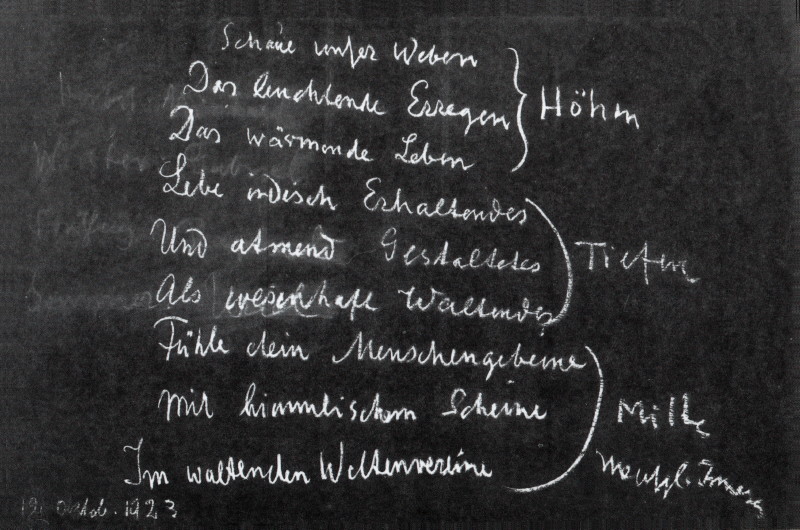 Schaue unser Weben
Das leuchtende Erregen
Das wärmende Leben
Höhen
Lebe irdisch Erhaltendes
Und atmend Gestaltetes
Als wesenhaft Waltendes
Tiefen
Fühle dein Menschengebeine
Mit himmlischem Scheine
Im waltenden Weltenvereine
Mitte
Inneres
19. Octob. 1923